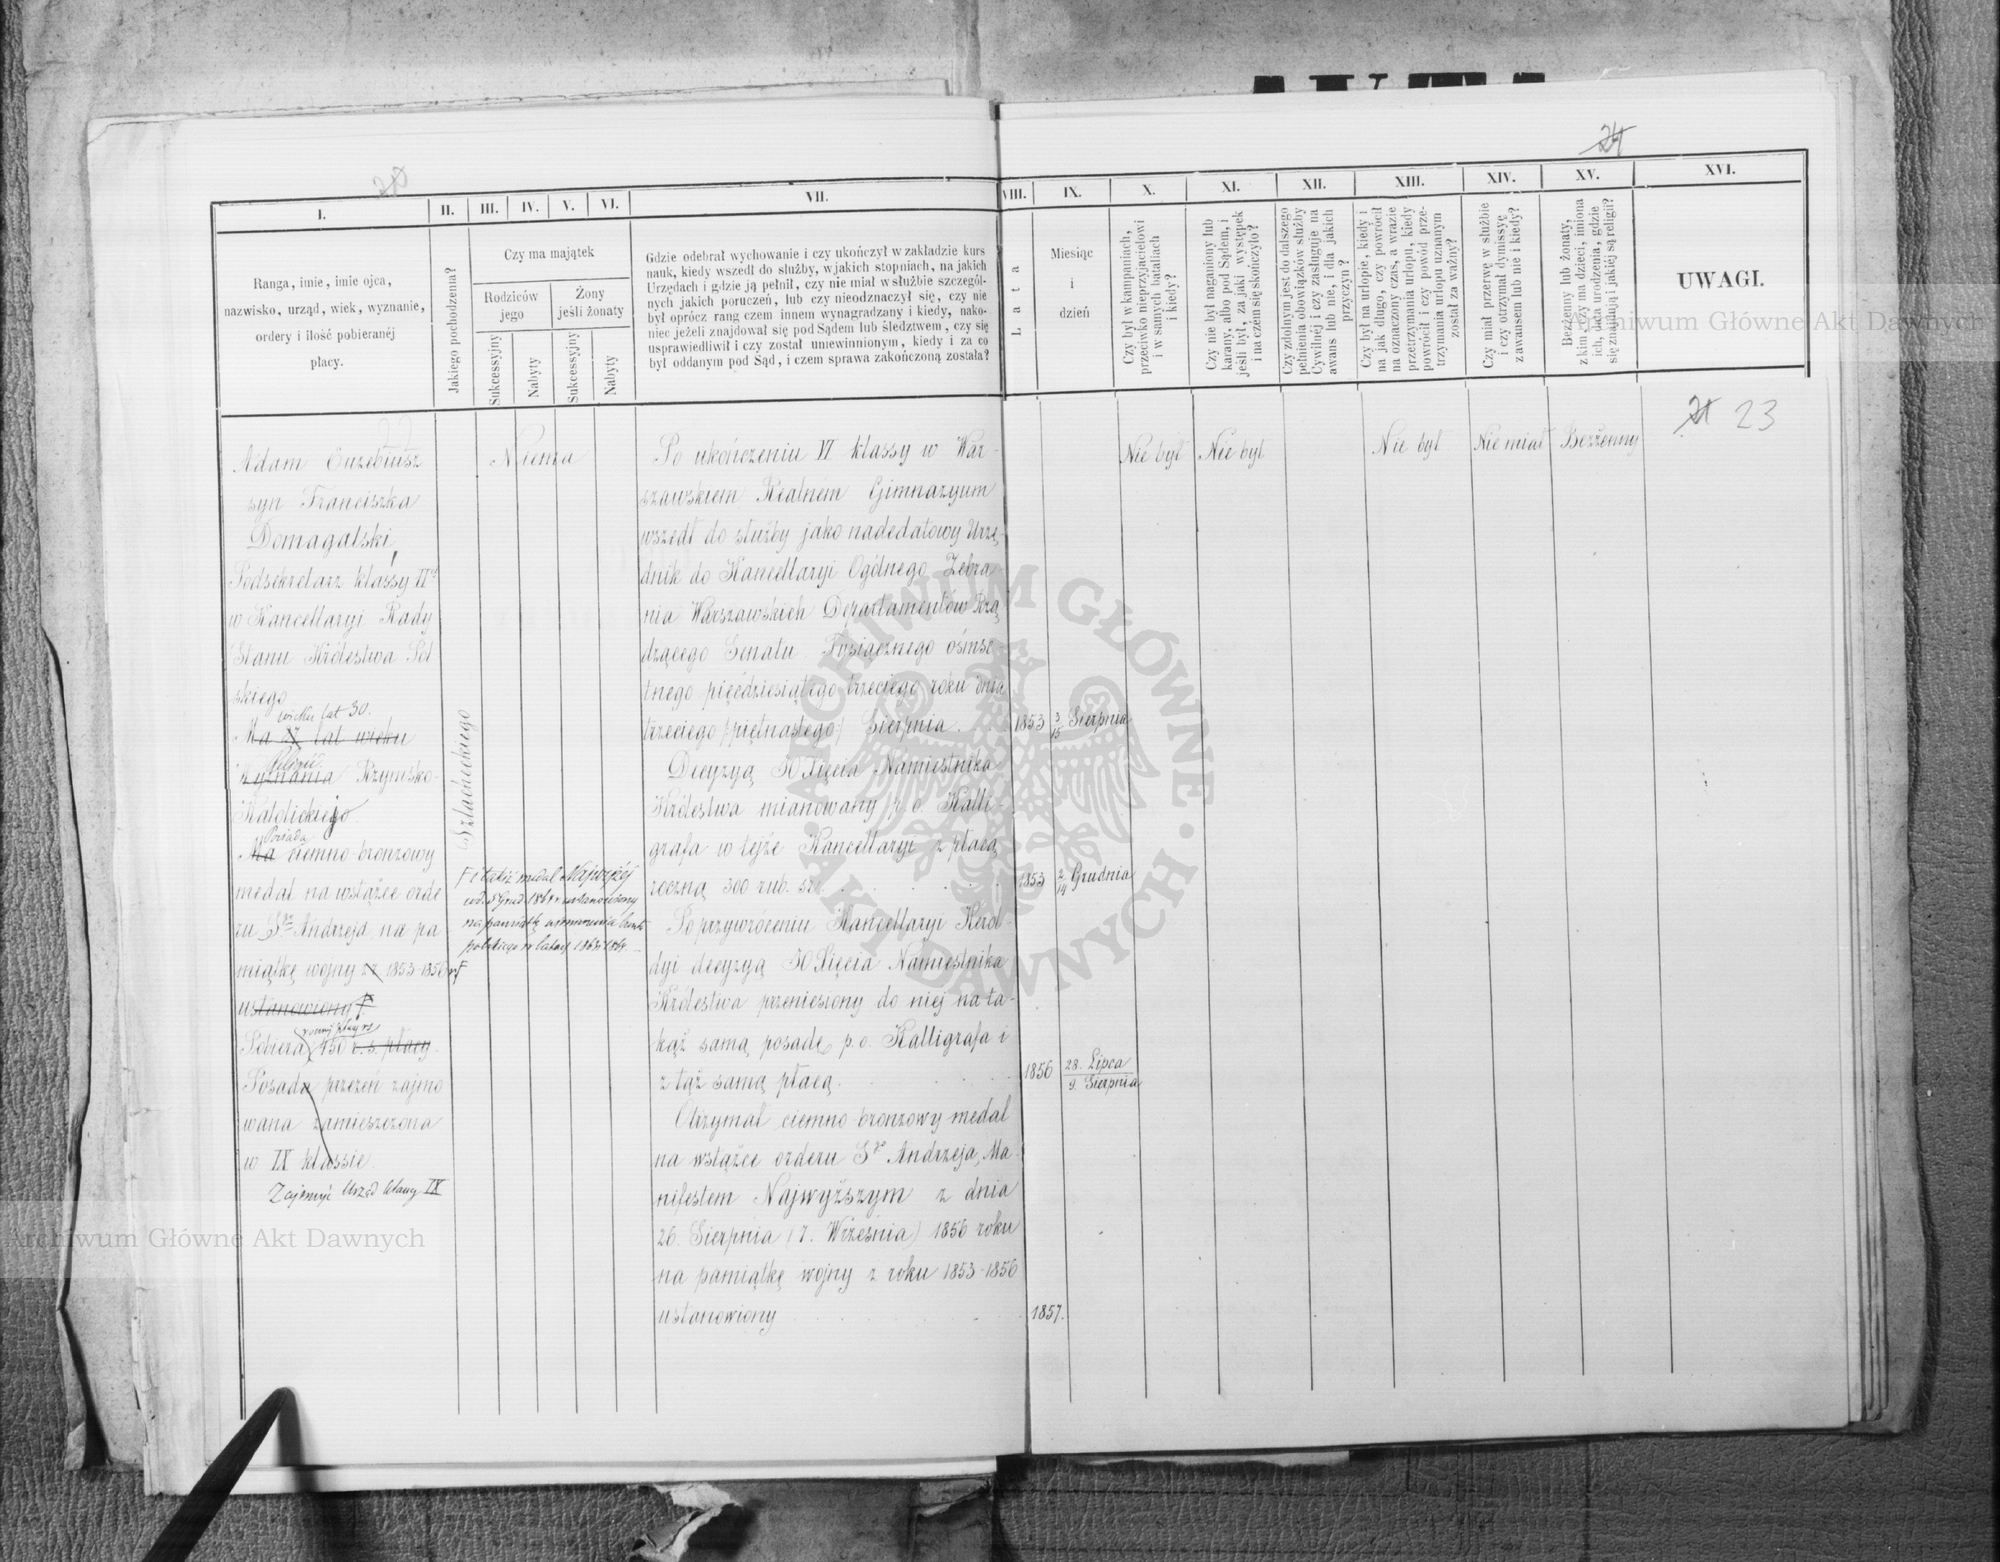 I.
II.
III.
IV.
V.
VI.
VII.
VIII.
IX.
X.
XI.
XII.
XIII.
XIV.
XV.
XVI.
Ranga, imie, imie ojca,
nazwisko, urząd, wiek, wyznanie,
ordery i ilość pobieranéj
płacy.
Jakiego pochodzenia?
Czy ma majątek
Rodziców
jego
Żony
jeśli żonaty
Sukcessyjny
Nabyty
Sukcessyjny
Nabyty
Gdzie odebrał wychowanie i czy ukończył w zakładzie kurs
nauk, kiedy wszedł do służby, w jakich stopniach, na jakich
Urzędach i gdzie ją pełnił, czy nie miał w służbie szczegól-
nych jakich poruczeń, lub czy nieodznaczył się, czy nie
był oprócz rang czem innem wynagradzany i kiedy, nako-
niec jeżeli znajdował się pod Sądem lub śledztwem, czy się
usprawiedliwił i czy został uniewinnionym, kiedy i za co
był oddanym pod Sąd, i czem sprawa zakończoną została?
Lata
Miesiąc
i
dzień
Czy był w kampaniach,
przeciwko nieprzyjacielowi
i w samych bataliach
i kiedy?
Czy nie był naganiony lub
karany, albo pod Sądem, i
jeśli był, za jaki występek
i na czem się skończyło?
Czy zdolnym jest do dalszego
pełnienia obowiązków służby
Cywilnéj i czy zasługuje na
awans lub nie, i dla jakich
przyczyn?
Czy był na urlopie, kiedy i
na jak długo, czy powrócił
na oznaczony czas, a wrazie
przetrzymania urlopu, kiedy
powrócił i czy powód prze-
trzymania urlopu uznanym
został za ważny?
Czy miał przerwę w służbie
i czy otrzymał dymissyę
z awansem lub nie i kiedy?
Bezżenny lub żonaty,
z kim, czy ma dzieci, imiona
ich, lata urodzenia, gdzie
się znajdują i jakiéj są religii?
UWAGI.
23
Adam Euzebiusz
syn Franciszka
Domagalski,
Podsekretarz klassy II
w Kancellaryi Rady
Stanu Królestwa Pol
skiego
wieku lat 30.
Ma 27 lat wieku
Religii
Wyznania Rzymsko-
Katolickiego
Posiada
Ma ciemno-bronzowy
medal na wstążce orde
ru Sgo Andrzeja na pa
miątkę wojny z r. 1853-1856
ustanowiony
Pobiera 450 r. s. płacy.
Posada przezeń zajmo
wana zamieszczona
w IX klassie.
Zajmuje Urząd klassy IX
Szlacheckiego
Niema
F i takiż medal Najwyżej
na pamiątkę
polskiego w latach 1863 i 1864
Po ukończeniu VI klassy w War-
szawskiem Realnem Gimnazyum
wszedł do służby jako nadedatowy Urzę-
dnik do Kancellaryi Ogólnego Zebra
nia Warszawskich Departamentów Rzą
dzącego Senatu. Tysiącznego ośmse-
tnego pięćdziesiątego trzeciego roku dnia
trzeciego (piętnastego) Sierpnia.
1853 3/15 Sierpnia
Decyzyą JO Xięcia Namiestnika
Królestwa mianowany p.o. Kalli-
grafa w tejże Kancellaryi z płacą
roczną 300 rub. sr.
1853 2/14 Grudnia
Po przywróceniu Kancellaryi Herol-
dyi decyzyą JO Xięcia Namiestnika
Królestwa przeniesiony do niej na ta-
kąż samą posadę p.o. Kalligrafa i
z tąż samą płacą.
1856 28. Lipca
9. Sierpnia
Otrzymał ciemno-bronzowy medal
na wstążce orderu Sgo Andrzeja, Ma-
nifestem Najwyższym z dnia
26. Sierpnia (7. Września) 1856 roku
na pamiątkę wojny z roku 1853-1856
ustanowiony
1857.
Nie był
Nie był
Nie był
Nie miał
Bezżenny
ARCHIWUM GŁÓWNE • AKT DAWNYCH •
Archiwum Główne Akt Dawnych
Archiwum Główne Akt Dawnych